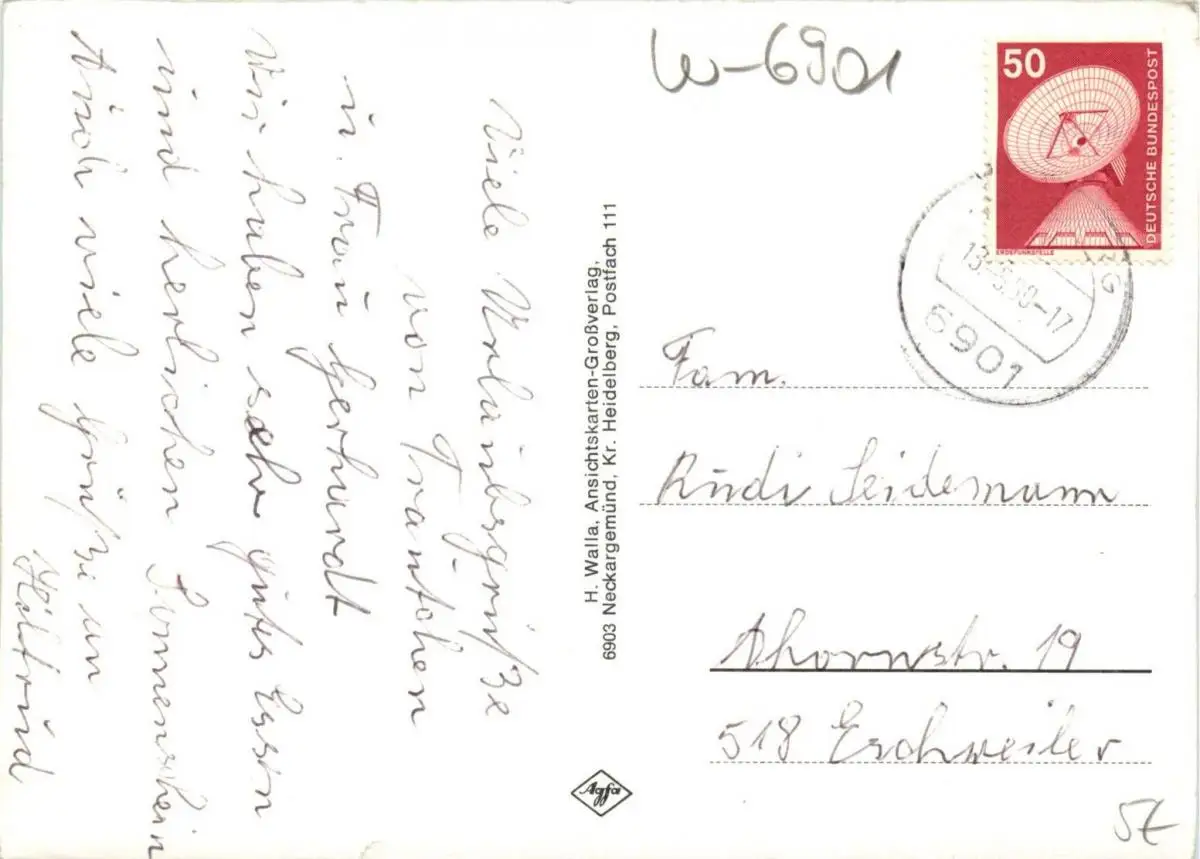 Viele Urlaubsgrüße
von Trautchen
u. Frau Gerhardt
Wir haben sehr gutes Essen
und herlichen Sonnenschein
Auch viele Grüße an
Hiltrud
H. Walla, Ansichtskarten-Großverlag,
6903 Neckargemünd, Kr. Heidelberg, Postfach 111
Agfa
W-6901
50
DEUTSCHE BUNDESPOST
ERDEFUNKSTELLE
-17
6901
Fam.
Rudi Seidemann
Ahornstr. 19
518 Eschweiler